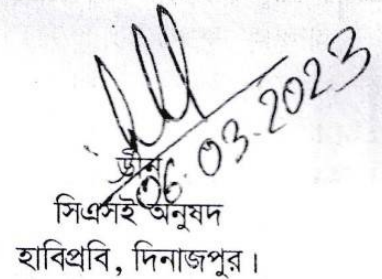 06.03.2023
ডীন
সিএসই অনুষদ
হাবিপ্রবি, দিনাজপুর।